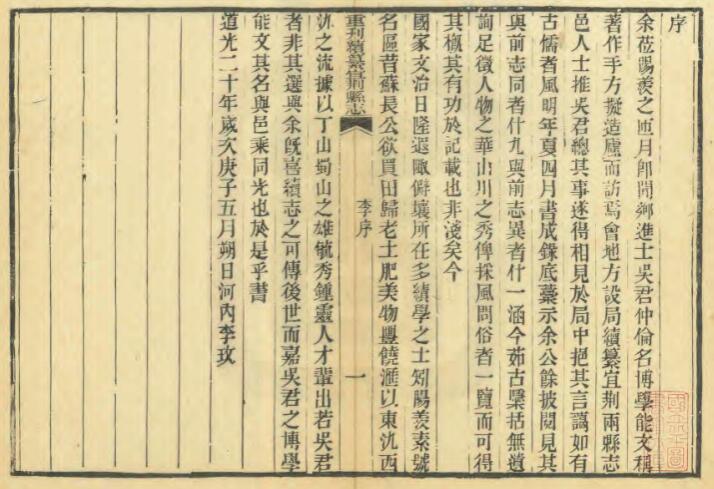 序
余莅陽羨之匝月卽聞鄉進士吳君仲倫名博學能文稱
著作手方擬造廬而訪焉會地方設局續纂宜荆兩縣志
邑人士推吳君總其事遂得相見於局中挹其言藹如有
古儒者風明年夏四月書成錄底藁示余公餘披閱見其
與前志同者什九與前志異者什一涵今茹古檃括無遺
詢足徵人物之華山川之秀俾採風問俗者一覽而可得
其槪其有功於記載也非淺矣今
國家文治日隆遐陬僻壤所在多績學之士矧陽羨素號
名區昔蘇長公欲買田歸老土肥美物豐饒滙以東氿西
重刊續纂宜荆縣志
李序
一
氿之流據以丁山蜀山之雄毓秀鍾靈人才輩出若吳君
者非其選與余旣喜續志之可傳後世而嘉吳君之博學
能文其名與邑乘同光也於是乎書
道光二十年歲次庚子五月朔日河內李玫